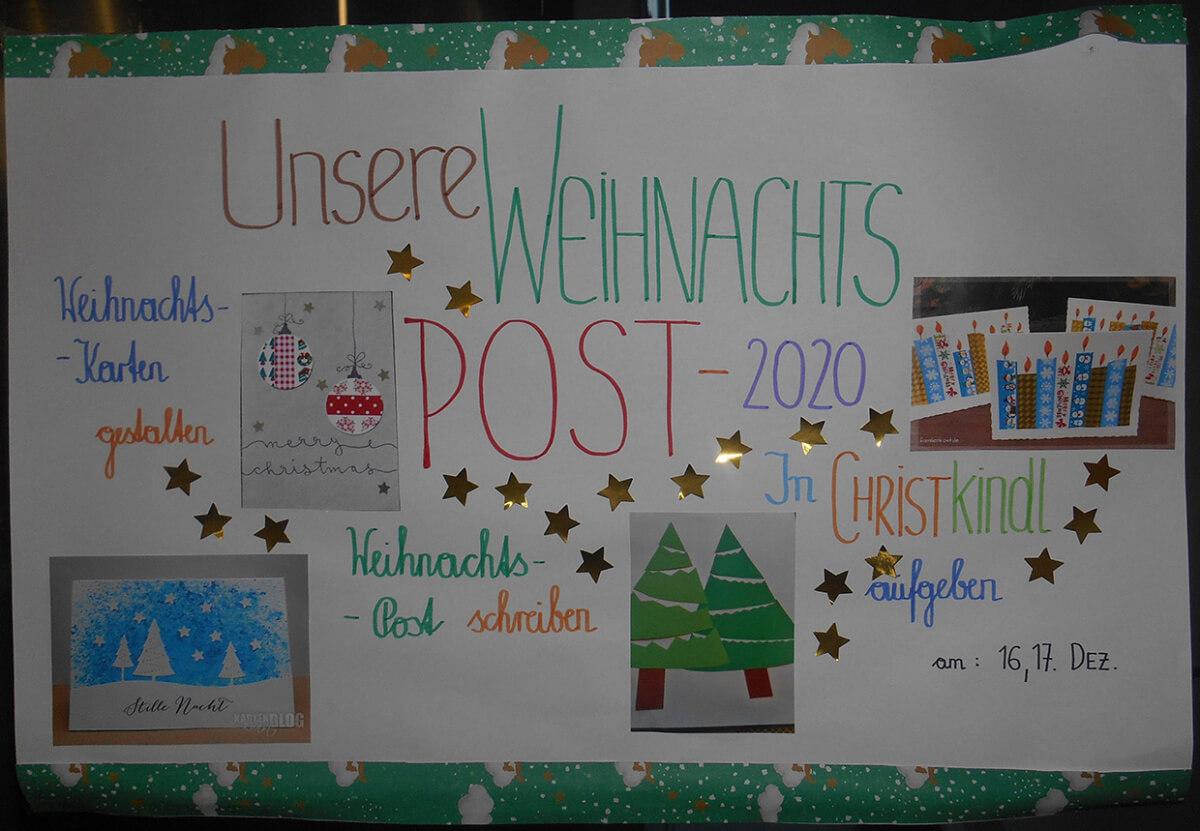 Unsere WEIHNACHTS
POST-2020
Weihnachts-
-Karten
gestalten
merry
christmas
In CHRISTkindl
aufgeben
am: 16,17. DEZ.
Weihnachts-
-Post schreiben
Stille Nacht
BLOG